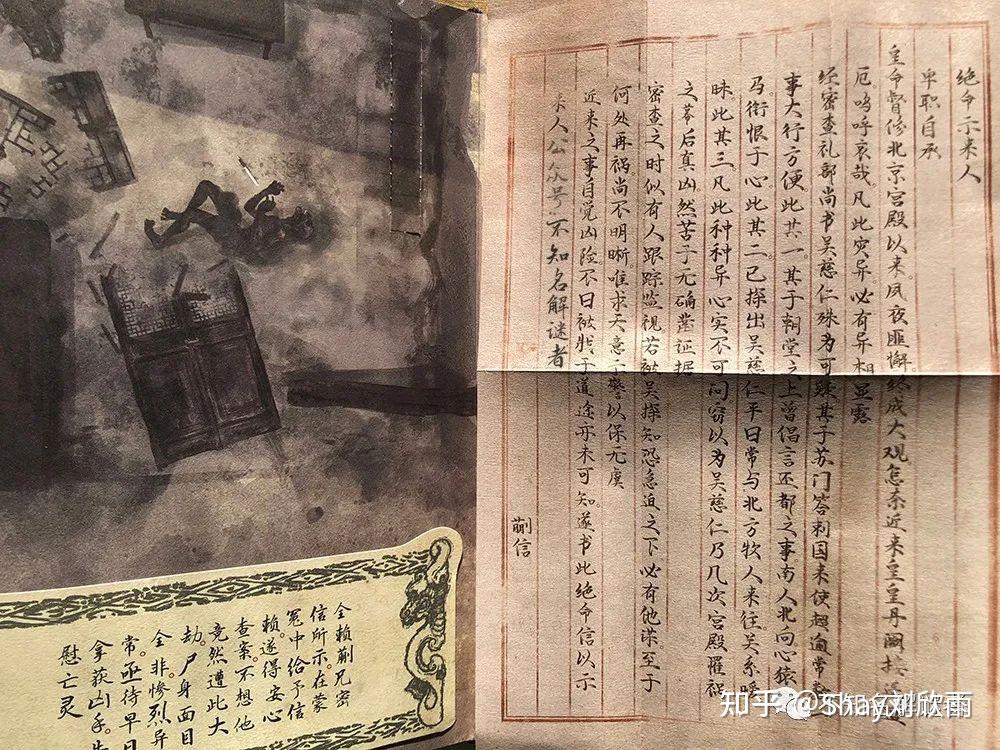 绝命示来人
卑职自承
皇命督修北京宫殿以来。夙夜匪懈。终成大观怎奈近来皇皇丹阙接
厄。呜呼哀哉。凡此灾异。必有异相显露
经密查礼部尚书吴慈仁殊为可疑其于苏门答剌国来使超逾常
事大行方便此其一。其于朝堂之上曾倡言还都之事南人北向心猿
马衔恨于心此其二已探出吴慈仁平日常与北方牧人来往关系暧
昧。此其三凡此种种异心实不可问窃以为吴慈仁乃几次宫殿罹祸
之幕后真凶然苦于无确凿证据
密查之时似有人跟踪监视若被吴探知恐急迫之下必有他谋至于
何处再祸尚不明晰唯求天意示警以保无虞
近来之事自觉凶险不日被戕于道途亦未可知遂书此绝命信以示
来人公众号:不知名解谜者
蒯信
全赖蒯兄密
信所示。在蒙
冤中给予信
赖。遂得安心
查案。不想他
竟然遭此大
劫。尸身面目
全非。惨烈异
常。亟待早日
拿获凶手。
慰亡灵
知乎 @Shay刘欣雨